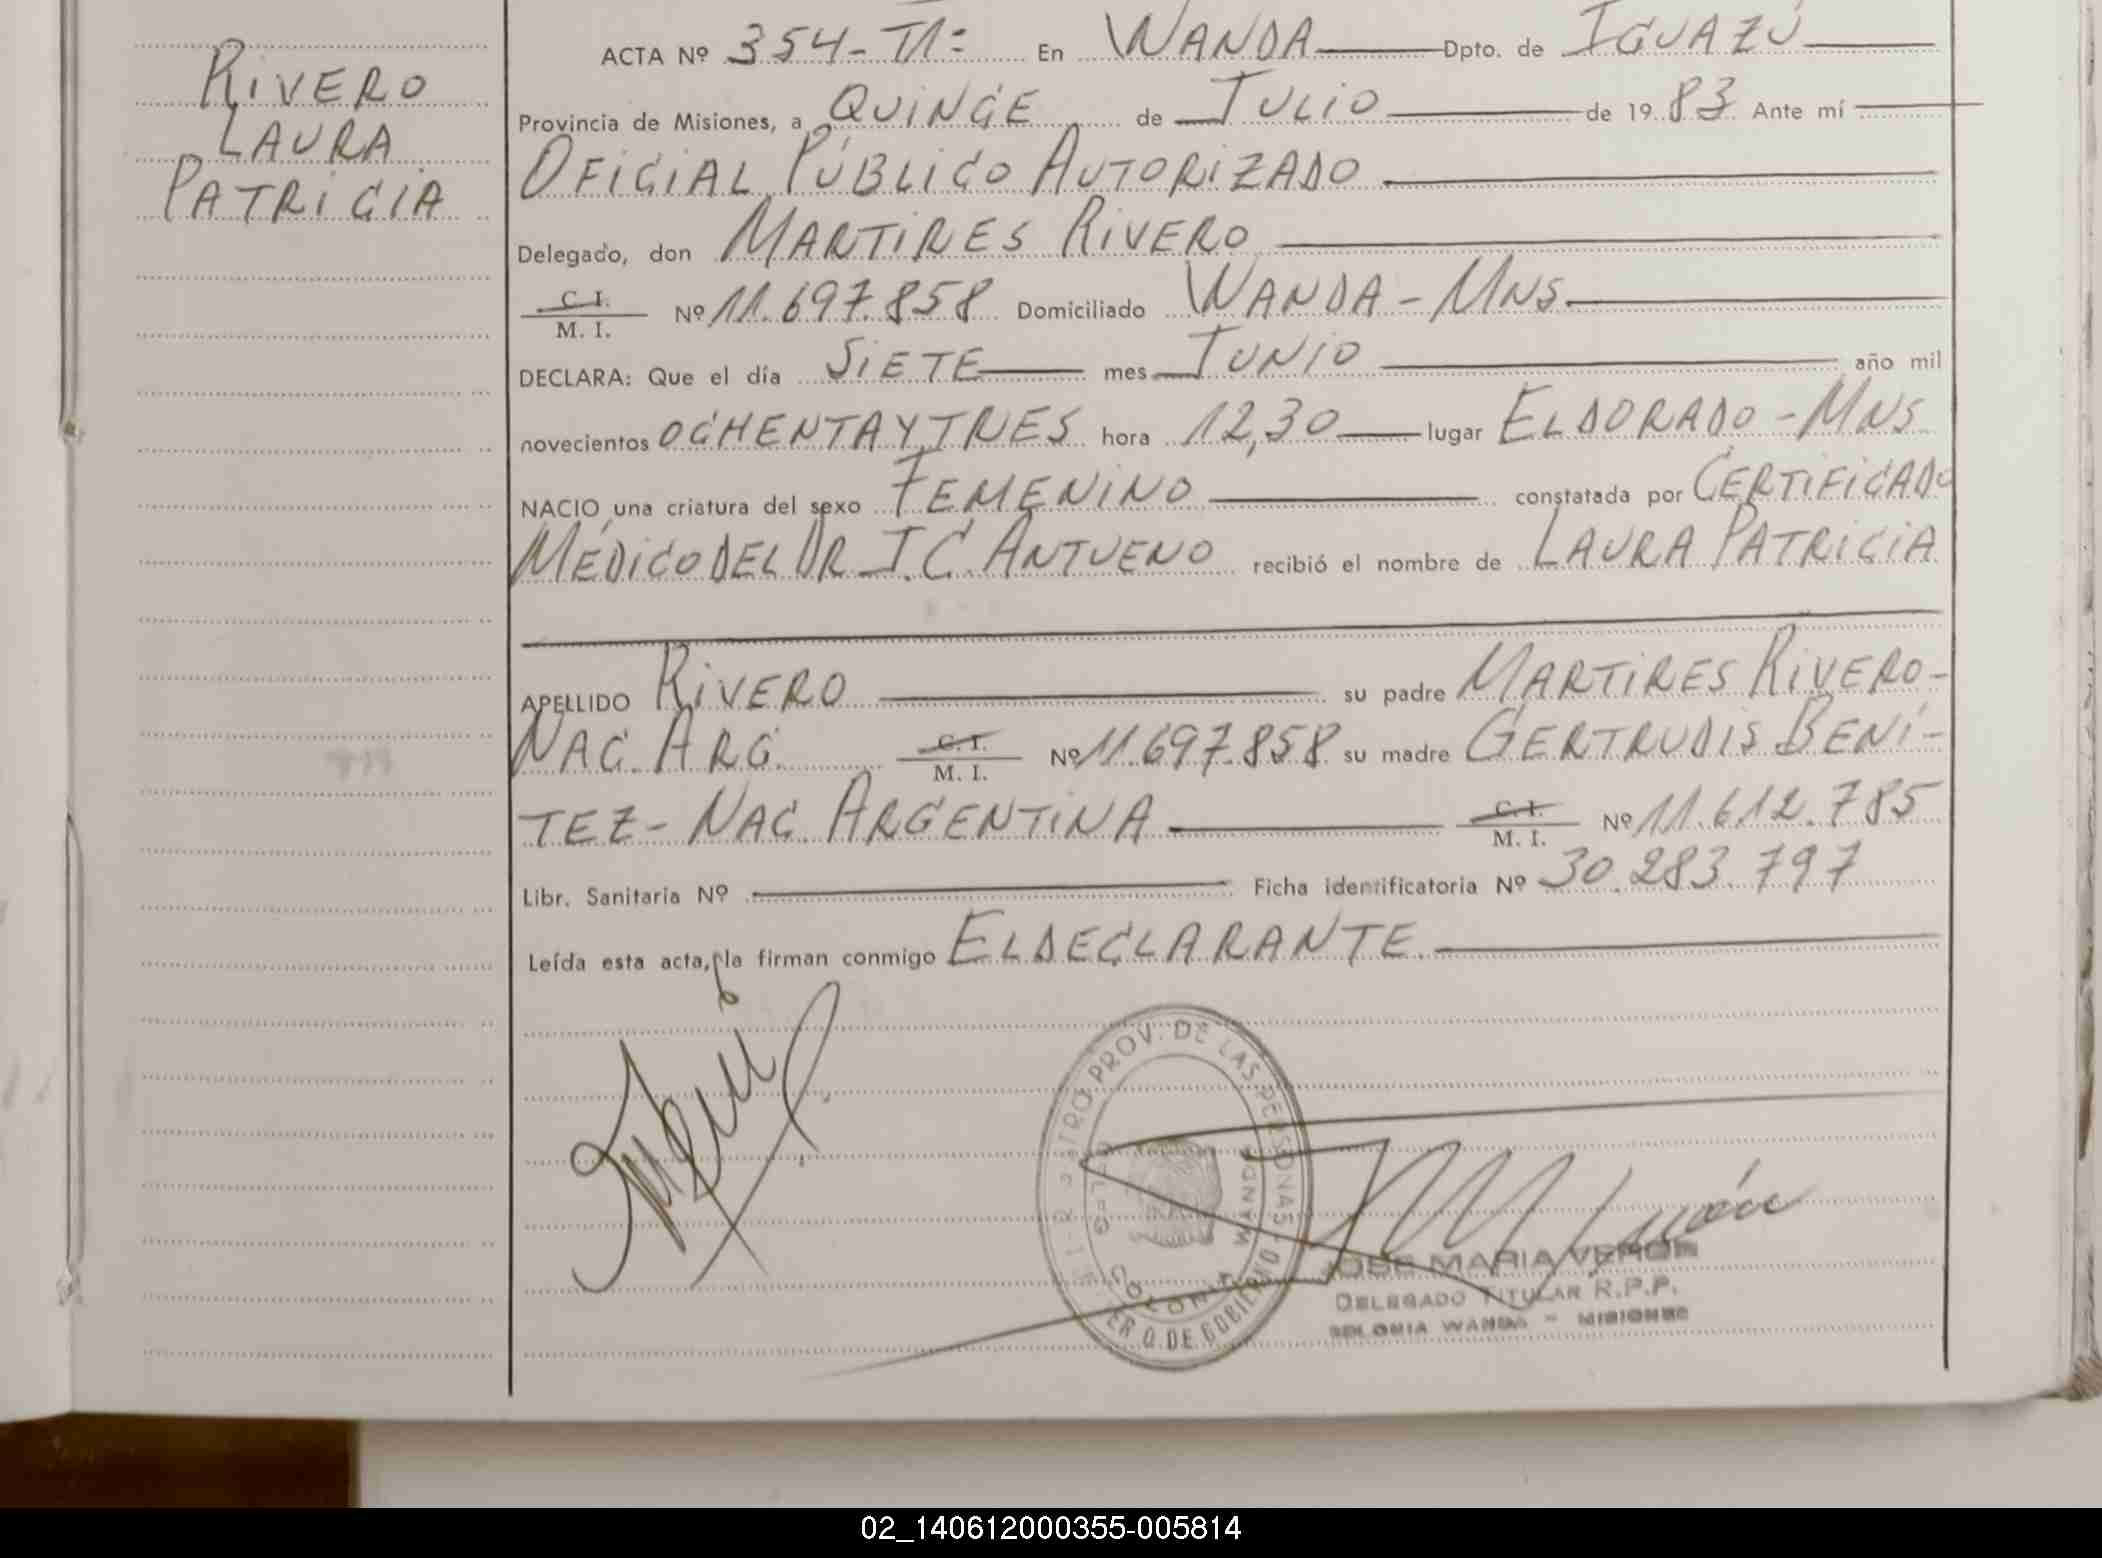 RIVERO
LAURA
PATRICIA
ACTA Nº 354-T1= En WANDA Dpto. de IGUAZÚ
Provincia de Misiones, a QUINCE de JULIO de 1983 Ante mí
OFICIAL PÚBLICO AUTORIZADO
Delegado, don MARTIRES RIVERO
C. I.
M. I. Nº 11.697.858 Domiciliado WANDA - MNS
DECLARA: Que el día SIETE mes JUNIO año mil
novecientos OCHENTA Y TRES hora 12,30 lugar ELDORADO - MNS
NACIO una criatura del sexo FEMENINO constatada por CERTIFICADO
MÉDICO DEL DR J.C. ANTUENO recibió el nombre de LAURA PATRICIA
APELLIDO RIVERO su padre MARTIRES RIVERO-
NAC. ARG. C. I. M. I. Nº 11.697.858 su madre GERTRUDIS BENI-
TEZ - NAC. ARGENTINA C. I. M. I. Nº 11.612.785
Libr. Sanitaria Nº Ficha identificatoria Nº 30.283.797
Leída esta acta, la firman conmigo EL DECLARANTE
PROV. DE LAS PERSONAS
WANDA
COLONIA
JOSE MARIA VERON
DELEGADO TITULAR R.P.P.
COLONIA WANDA - MISIONES
02_140612000355-005814